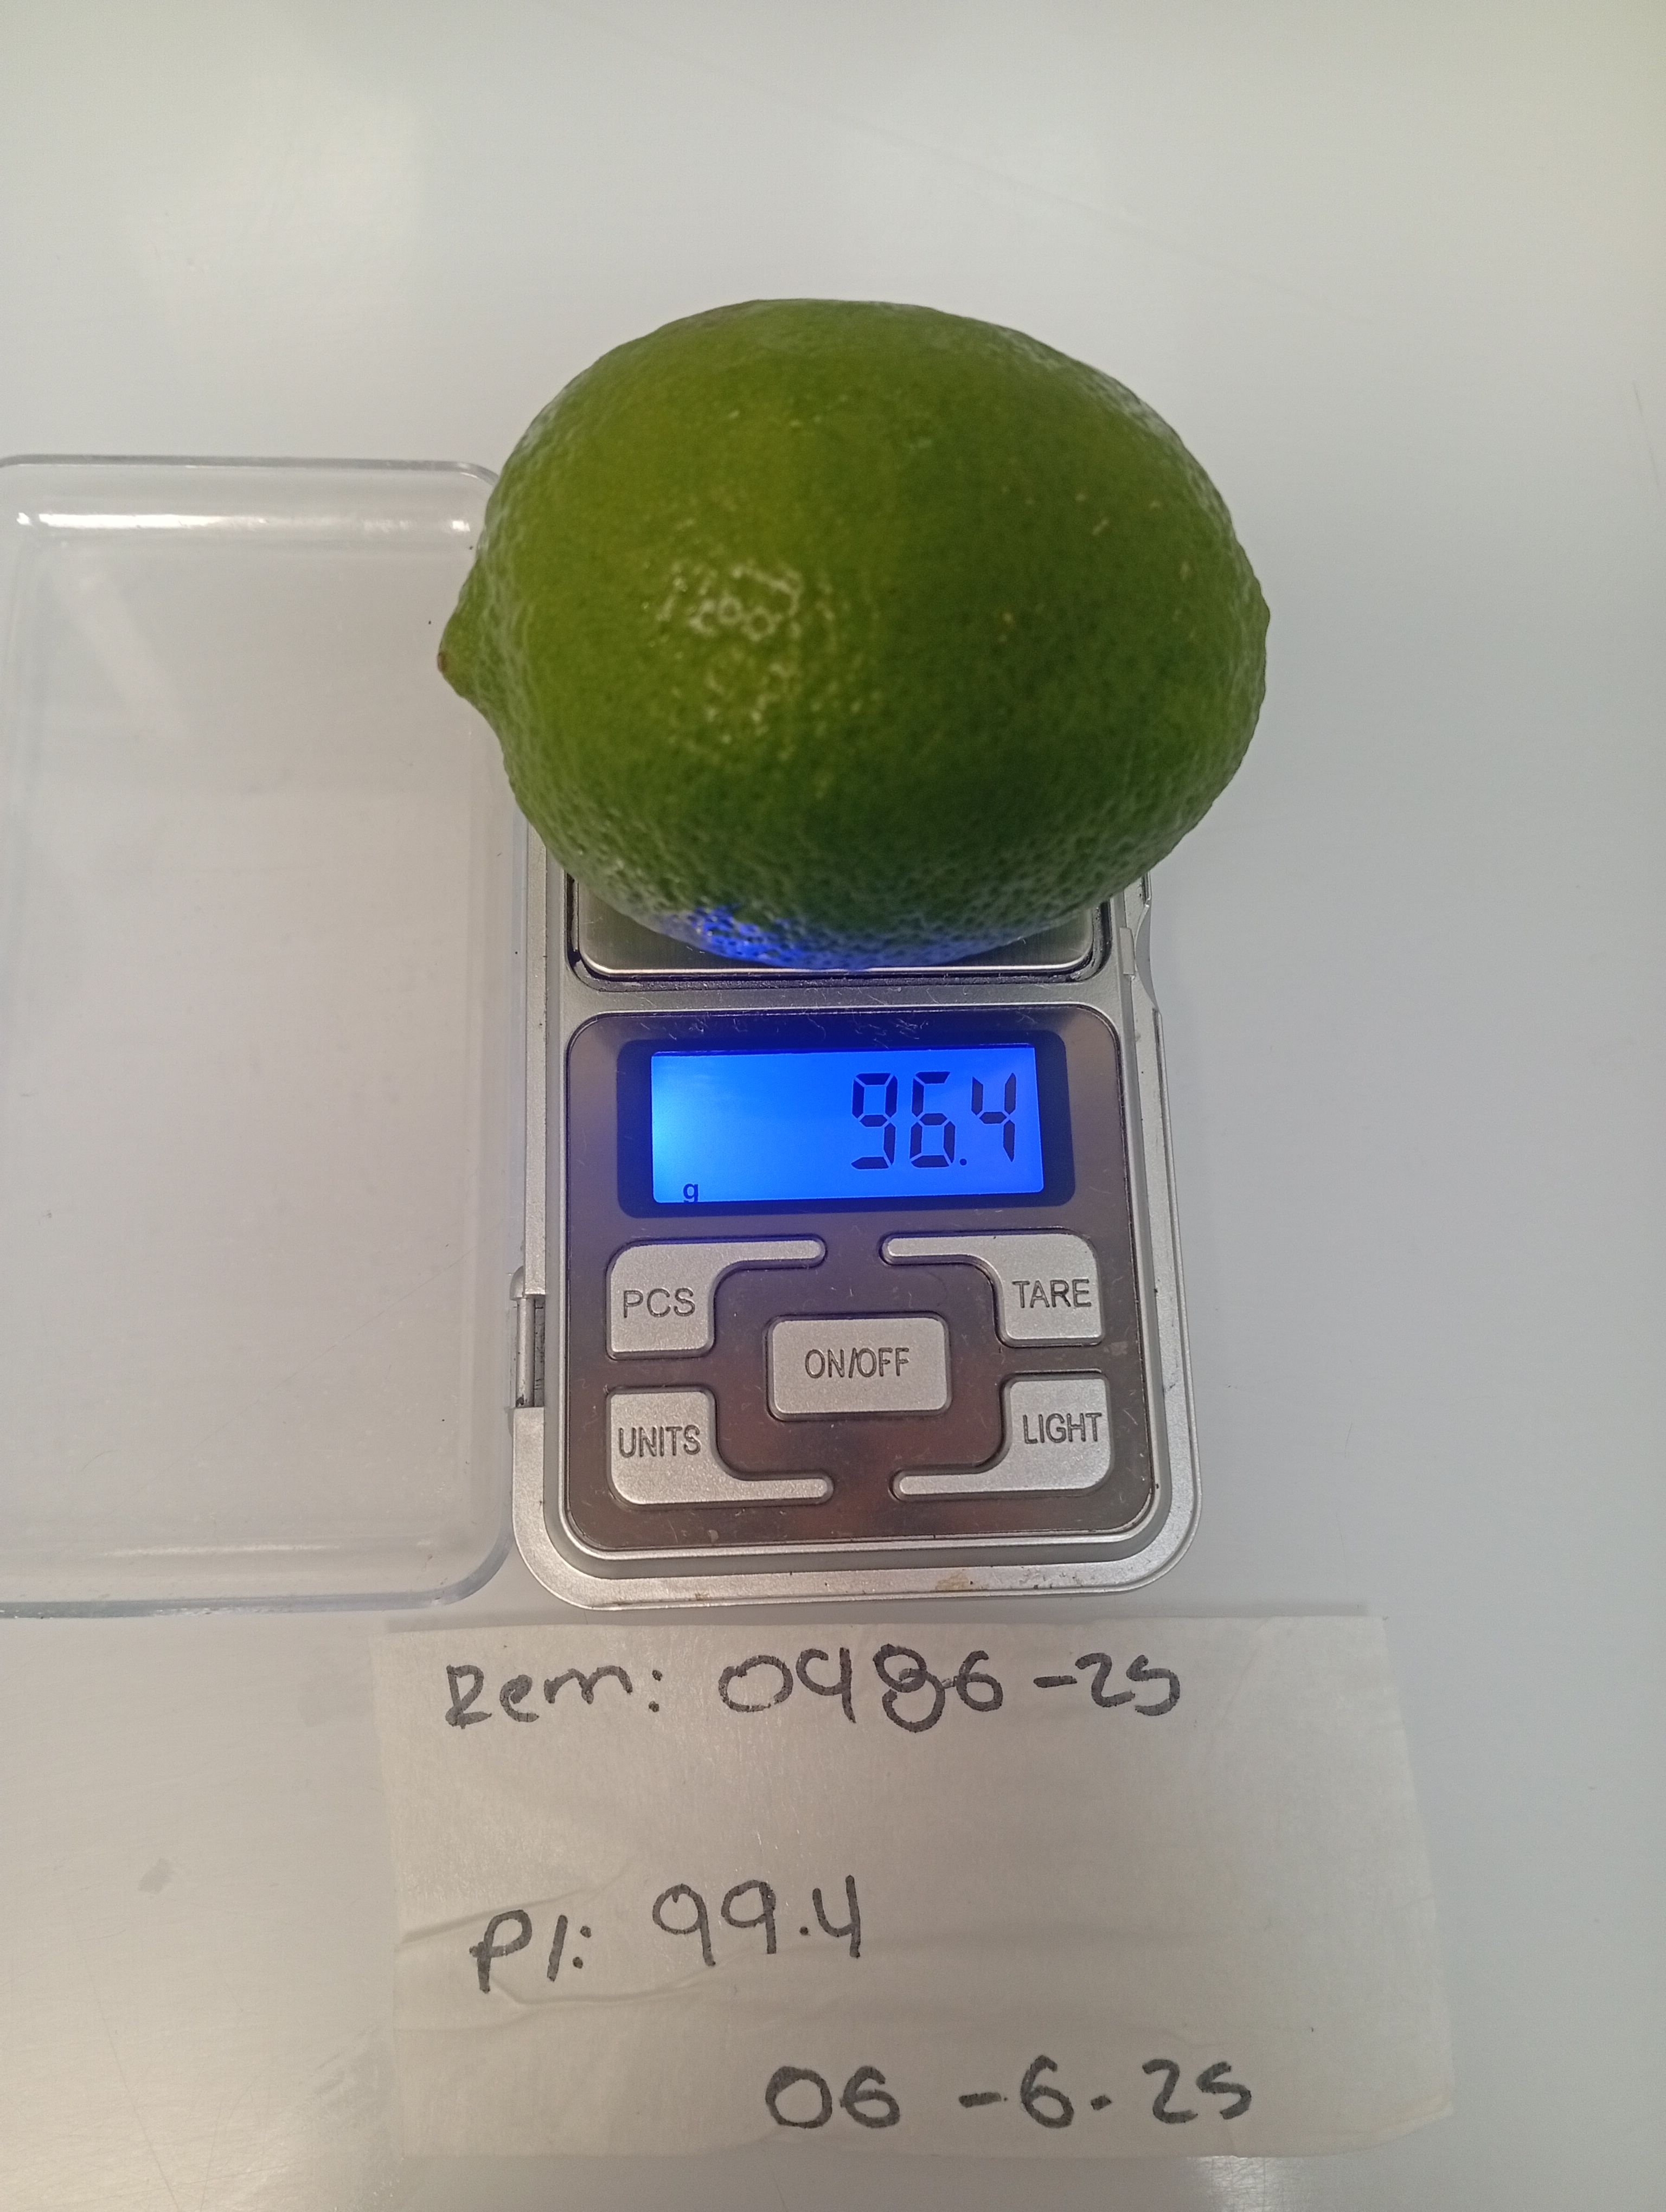 96.4
g
PCS
TARE
ON/OFF
UNITS
LIGHT
Rem: 0486-25
P/: 99.4
06-6-25